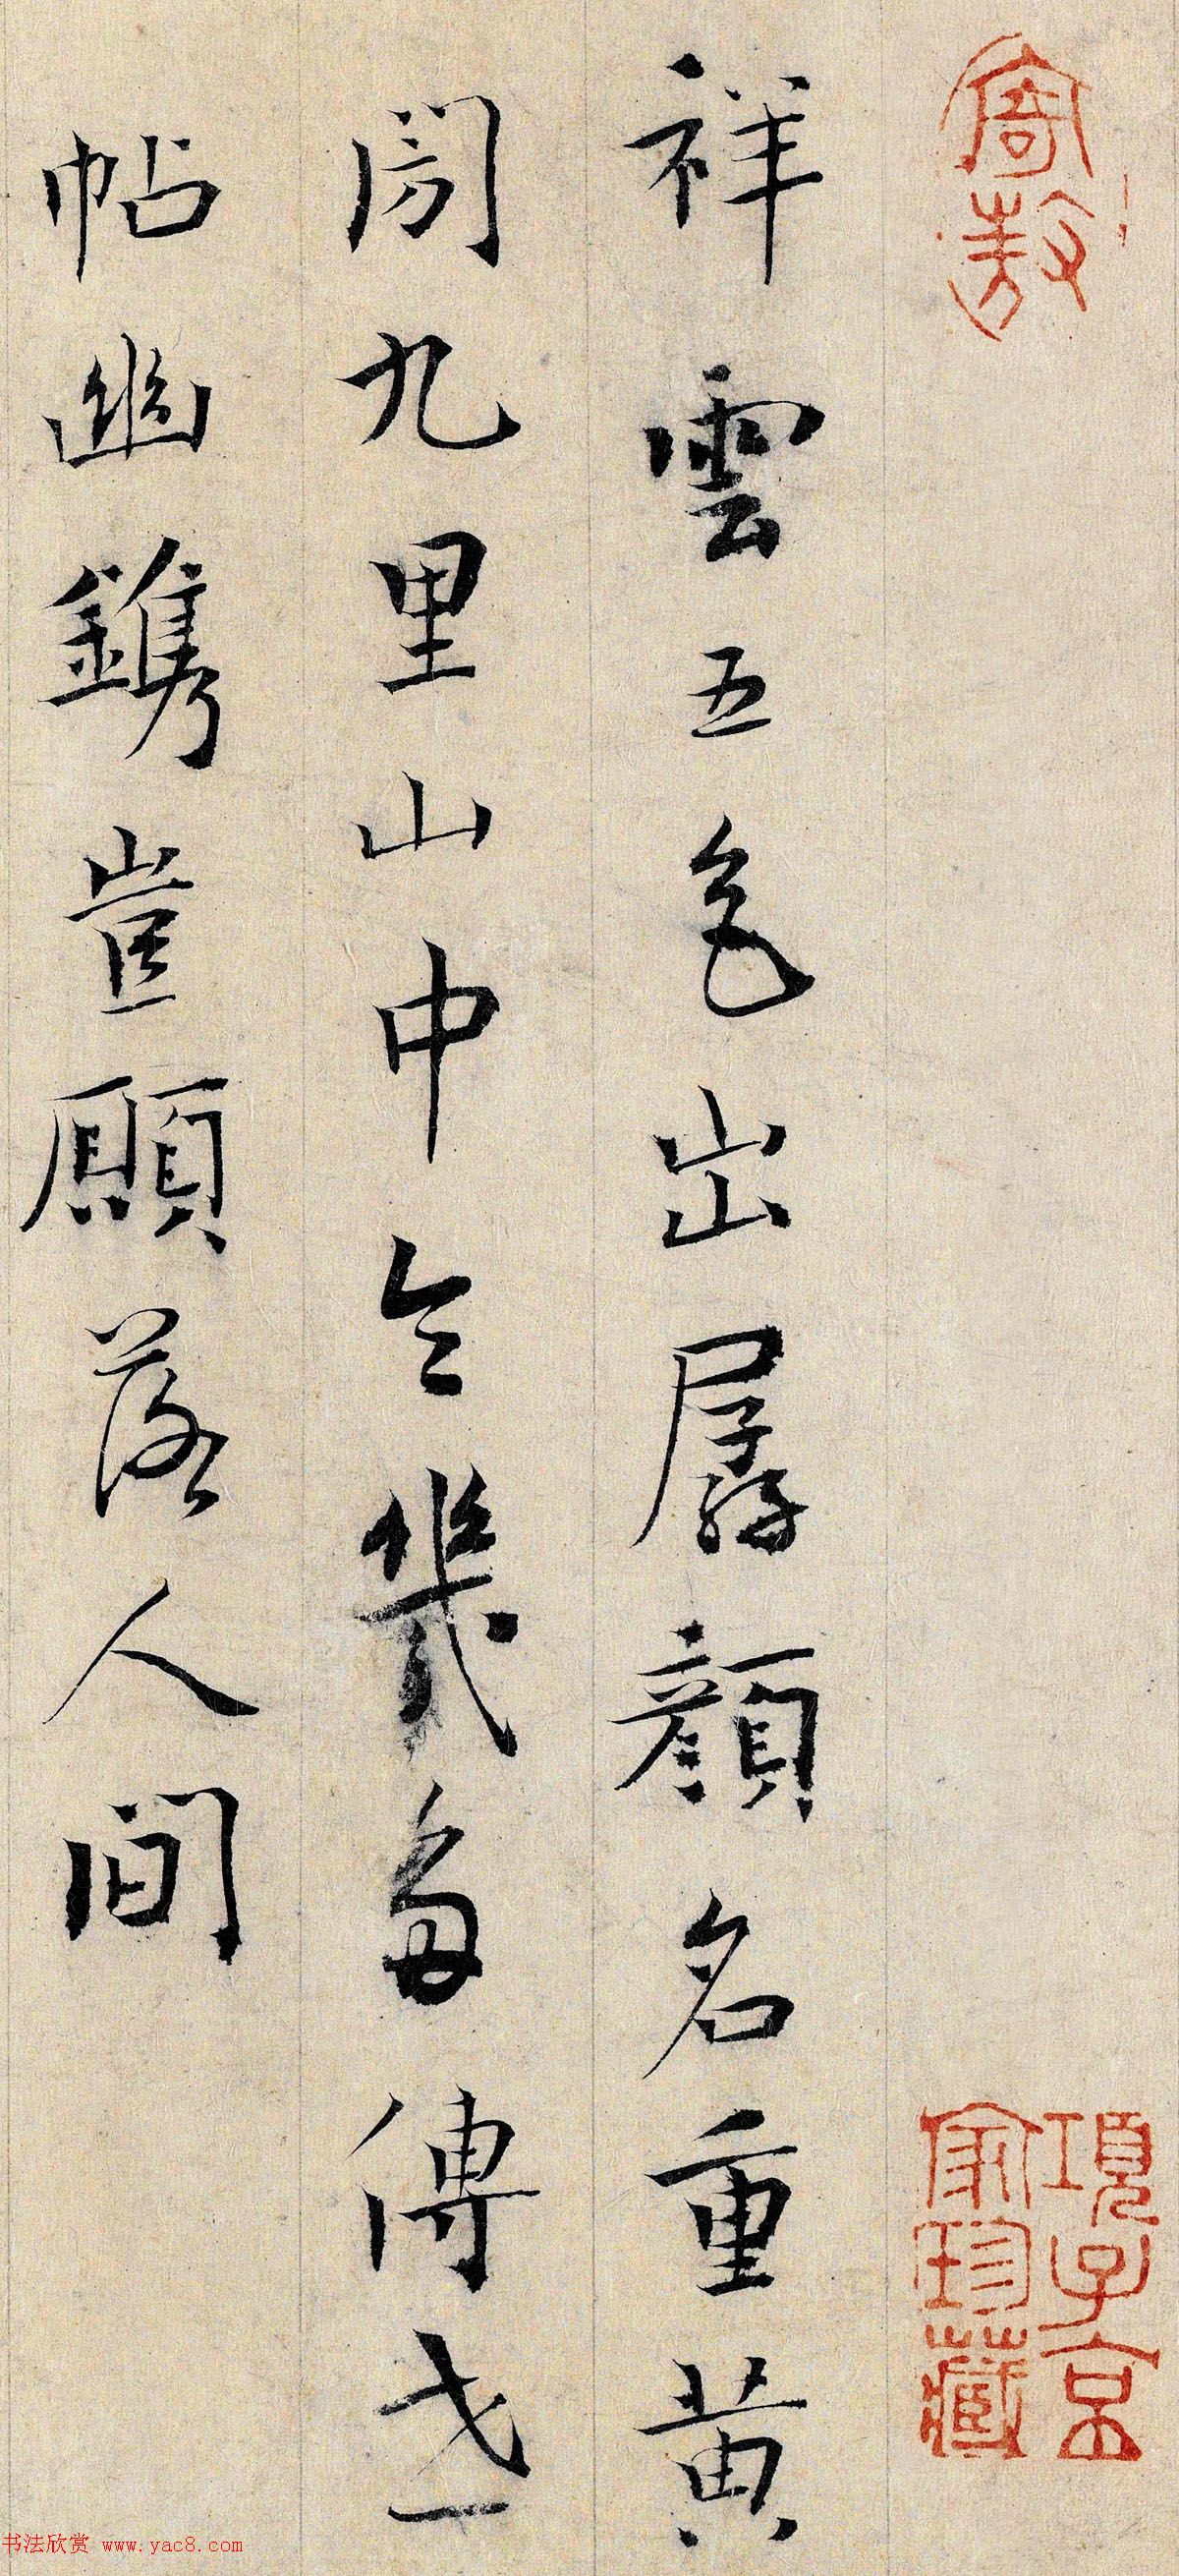 寄敖
項子京
家珍藏
祥雲五色出孱顔名重黄
九里山中令幾多傳世
帖幽鐫豈願落人間
书法欣赏 www.yac8.com